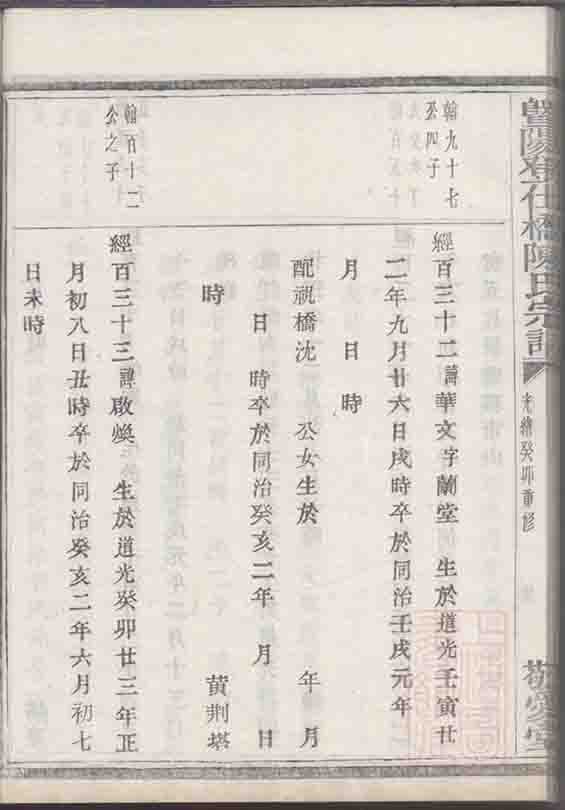 暨陽登仕橋陳氏宗譜
光緒癸卯重修
敬愛堂
翰九十七
公四子
經百三十二諱華文字蘭堂 生於道光壬寅廿
二年九月廿六日戌時卒於同治壬戌元年
月 日 時
配視橋沈 公女生於 年 月
日 時卒於同治癸亥二年 月 日
時 黄荆塔
翰百十二
公之子
經百三十三諱啟煥 生於道光癸卯廿三年正
月初八日丑時卒於同治癸亥二年六月初七
日未時